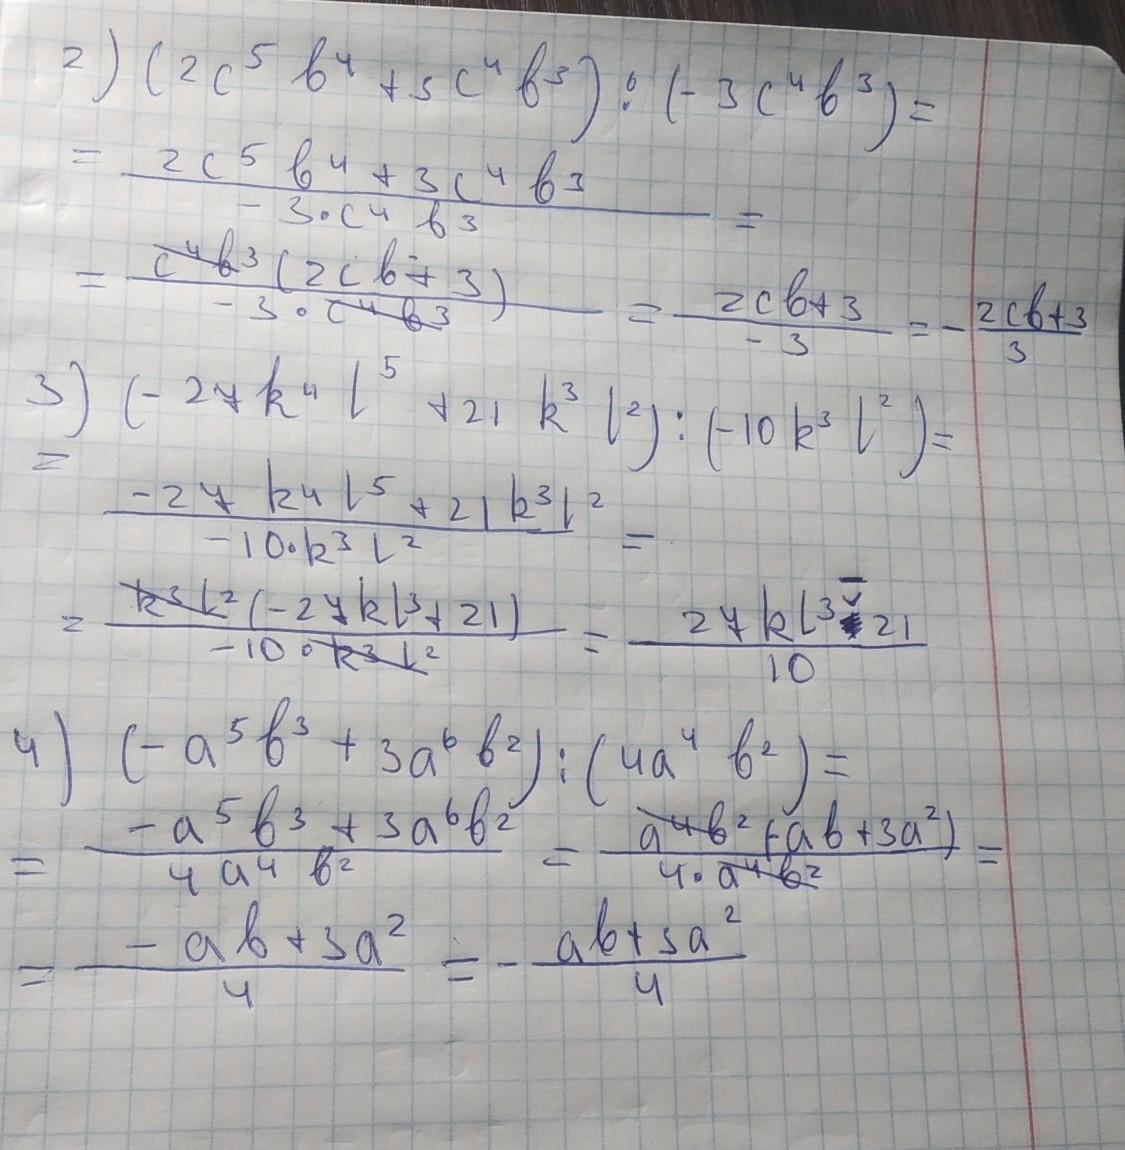 2) (2c⁵ b⁴ + 3c⁴b³) : (-3c⁴b³) =
= (2c⁵ b⁴ + 3c⁴ b³)/(-3·c⁴ b³) =
= (c⁴b³(2cb+3))/(-3·c⁴b³) = (2cb+3)/(-3) = -(2cb+3)/3
3) (-27k⁴ l⁵ + 21 k³ l²) : (-10k³ l²) =
= (-27 k⁴ l⁵ + 21k³l²)/(-10·k³ l²) =
= (k³l²(-27kl³+21))/(-10·k³l²) = (27kl³-21)/10
4) (-a⁵b³ + 3a⁶b²) : (4a⁴ b²) =
= (-a⁵b³ + 3a⁶b²)/(4a⁴ b²) = (a⁴b²(-ab+3a²))/(4·a⁴b²) =
= (-ab+3a²)/4 = -(ab+3a²)/4